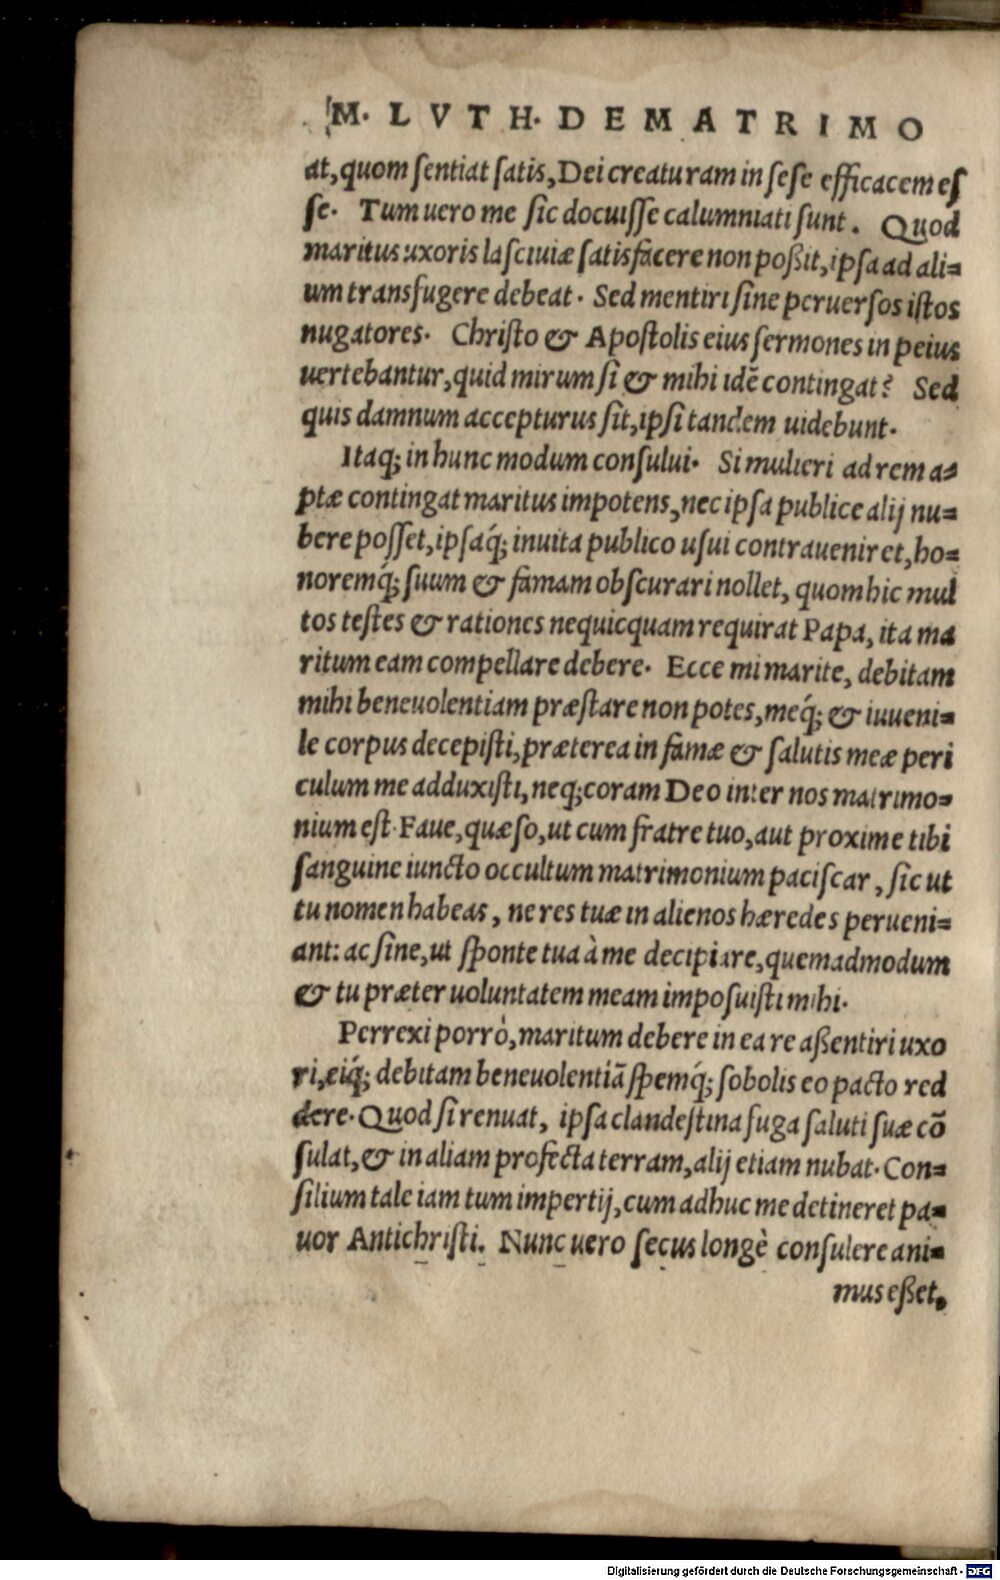 M. LVTH. DE MATRIMO
at, quom ſentiat ſatis, Dei creaturam in ſeſe efficacem eſ
ſe. Tum uero me ſic docuiſſe calumniati ſunt. Quod
maritus uxoris laſciuiæ ſatisfacere non poßit, ipſa ad ali=
um transfugere debeat. Sed mentiri ſine peruerſos iſtos
nugatores. Chriſto & Apoſtolis eius ſermones in peius
uertebantur, quid mirum ſi & mihi idē contingat? Sed
quis damnum accepturus ſit, ipſi tandem uidebunt.
Itaq; in hunc modum conſului. Si mulieri ad rem a=
ptæ contingat maritus impotens, nec ipſa publice alij nu=
bere poſſet, ipſaq́; inuita publico uſui contraueniret, ho=
noremq́; ſuum & famam obſcurari nollet, quom hic mul
tos teſtes & rationes nequicquam requirat Papa, ita ma
ritum eam compellare debere. Ecce mi marite, debitam
mihi beneuolentiam præſtare non potes, meq́; & iuueni=
le corpus decepiſti, præterea in famæ & ſalutis meæ peri
culum me adduxiſti, neq; coram Deo inter nos matrimo=
nium eſt. Faue, quæſo, ut cum fratre tuo, aut proxime tibi
ſanguine iuncto occultum matrimonium paciſcar, ſic ut
tu nomen habeas, ne res tuæ in alienos hæredes perueni=
ant: ac ſine, ut ſponte tua à me decipiare, quemadmodum
& tu præter uoluntatem meam impoſuiſti mihi.
Perrexi porrò, maritum debere in ea re aßentiri uxo
ri, eiq́; debitam beneuolentiā ſpemq́; ſobolis eo pacto red
dere. Quod ſi renuat, ipſa clandeſtina fuga ſaluti ſuæ cō
ſulat, & in aliam profecta terram, alij etiam nubat. Con=
ſilium tale iam tum impertij, cum adhuc me detineret pa=
uor Antichriſti. Nunc uero ſecus longè conſulere ani=
mus eßet,
Digitalisierung gefördert durch die Deutsche Forschungsgemeinschaft - DFG